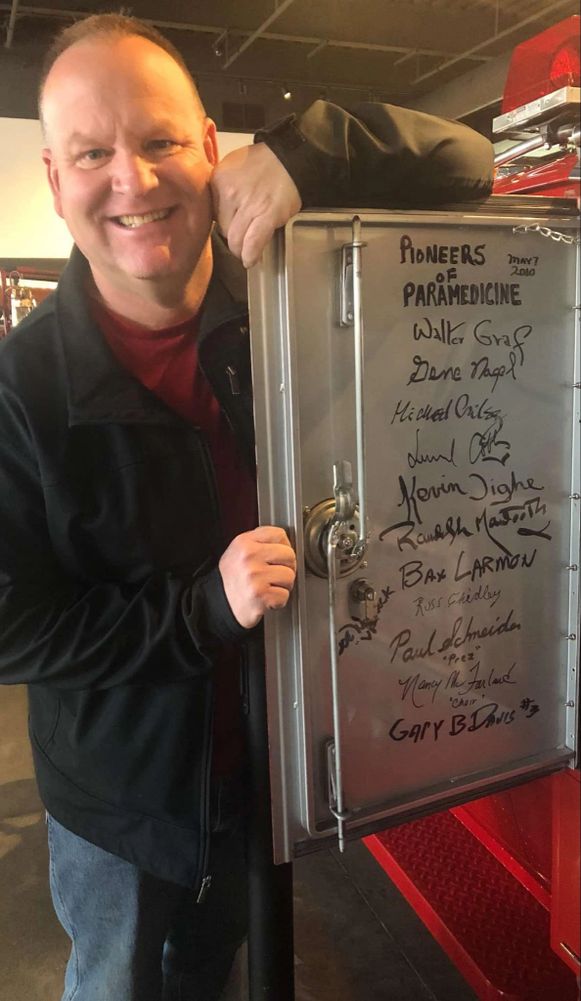 PIONEERS
OF
PARAMEDICINE
MAY 7
2010
Walter Graf
Gene Nagel
Michael Criley
Kevin Tighe
Randolph Mantooth
BAX LARMON
Russ Shedley
Paul Schneider
"Prez"
Nancy McFarland
"Chair"
GARY B DAVIS #3